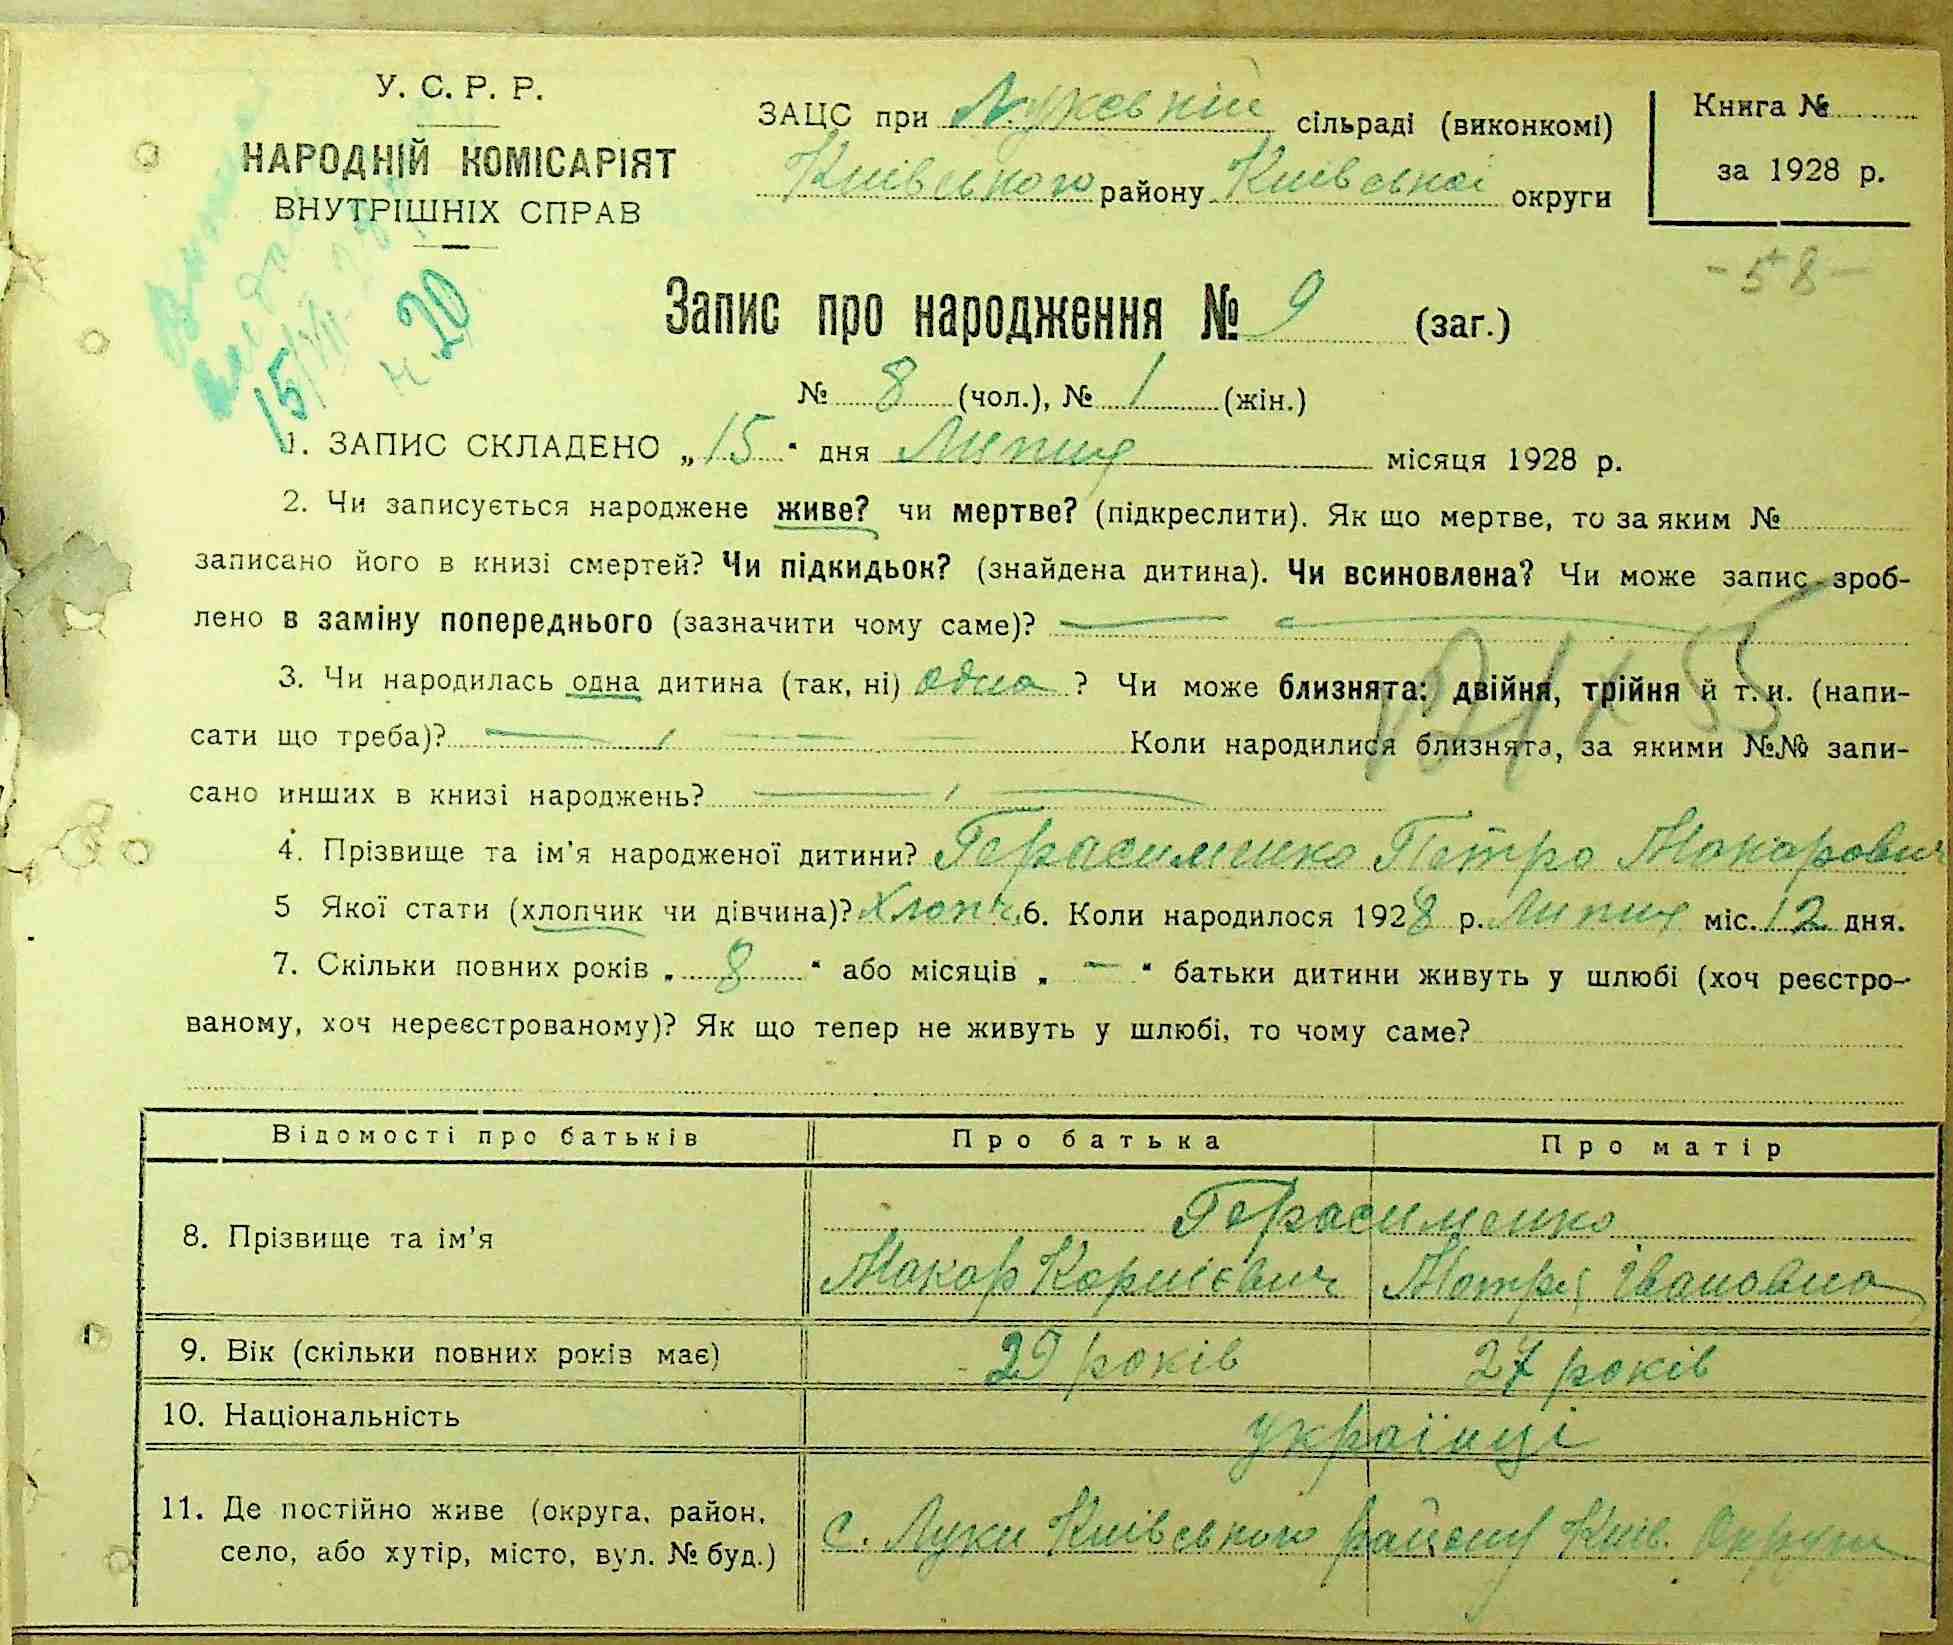 У. С. Р. Р.
НАРОДНІЙ КОМІСАРІЯТ
ВНУТРІШНІХ СПРАВ
ЗАЦС при Лукєвній сільраді (виконкомі)
Київського району Київської округи
Книга №
за 1928 р.
- 58 -
15/VII-28 р.
н 20
Запис про народження № 9 (заг.)
№ 8 (чол.), № 1 (жін.)
1. ЗАПИС СКЛАДЕНО „ 15 “ дня Липня місяця 1928 р.
2. Чи записується народжене живе? чи мертве? (підкреслити). Як що мертве, то за яким №
записано його в книзі смертей? Чи підкидьок? (знайдена дитина). Чи всиновлена? Чи може запис зроб-
лено в заміну попереднього (зазначити чому саме)? —
3. Чи народилась одна дитина (так, ні) одна ? Чи може близнята: двійня, трійня й т. и. (напи-
сати що треба)? — Коли народилися близнята, за якими №№ запи-
сано инших в книзі народжень? —
4. Прізвище та ім'я народженої дитини? Герасименко Петро Макарович
5 Якої стати (хлопчик чи дівчина)? Хлопч. 6. Коли народилося 1928 р. Липня міс. 12 дня.
7. Скільки повних років „ 8 “ або місяців „ — “ батьки дитини живуть у шлюбі (хоч реєстро-
ваному, хоч нереєстрованому)? Як що тепер не живуть у шлюбі, то чому саме?
Відомості про батьків Про батька Про матір
8. Прізвище та ім'я Герасименко
Макар Корнієвич Мотря Івановна
9. Вік (скільки повних років має) 29 років 27 років
10. Національність українці
11. Де постійно живе (округа, район, село, або хутір, місто, вул. № буд.) с. Луки Київського району Київ. Округи